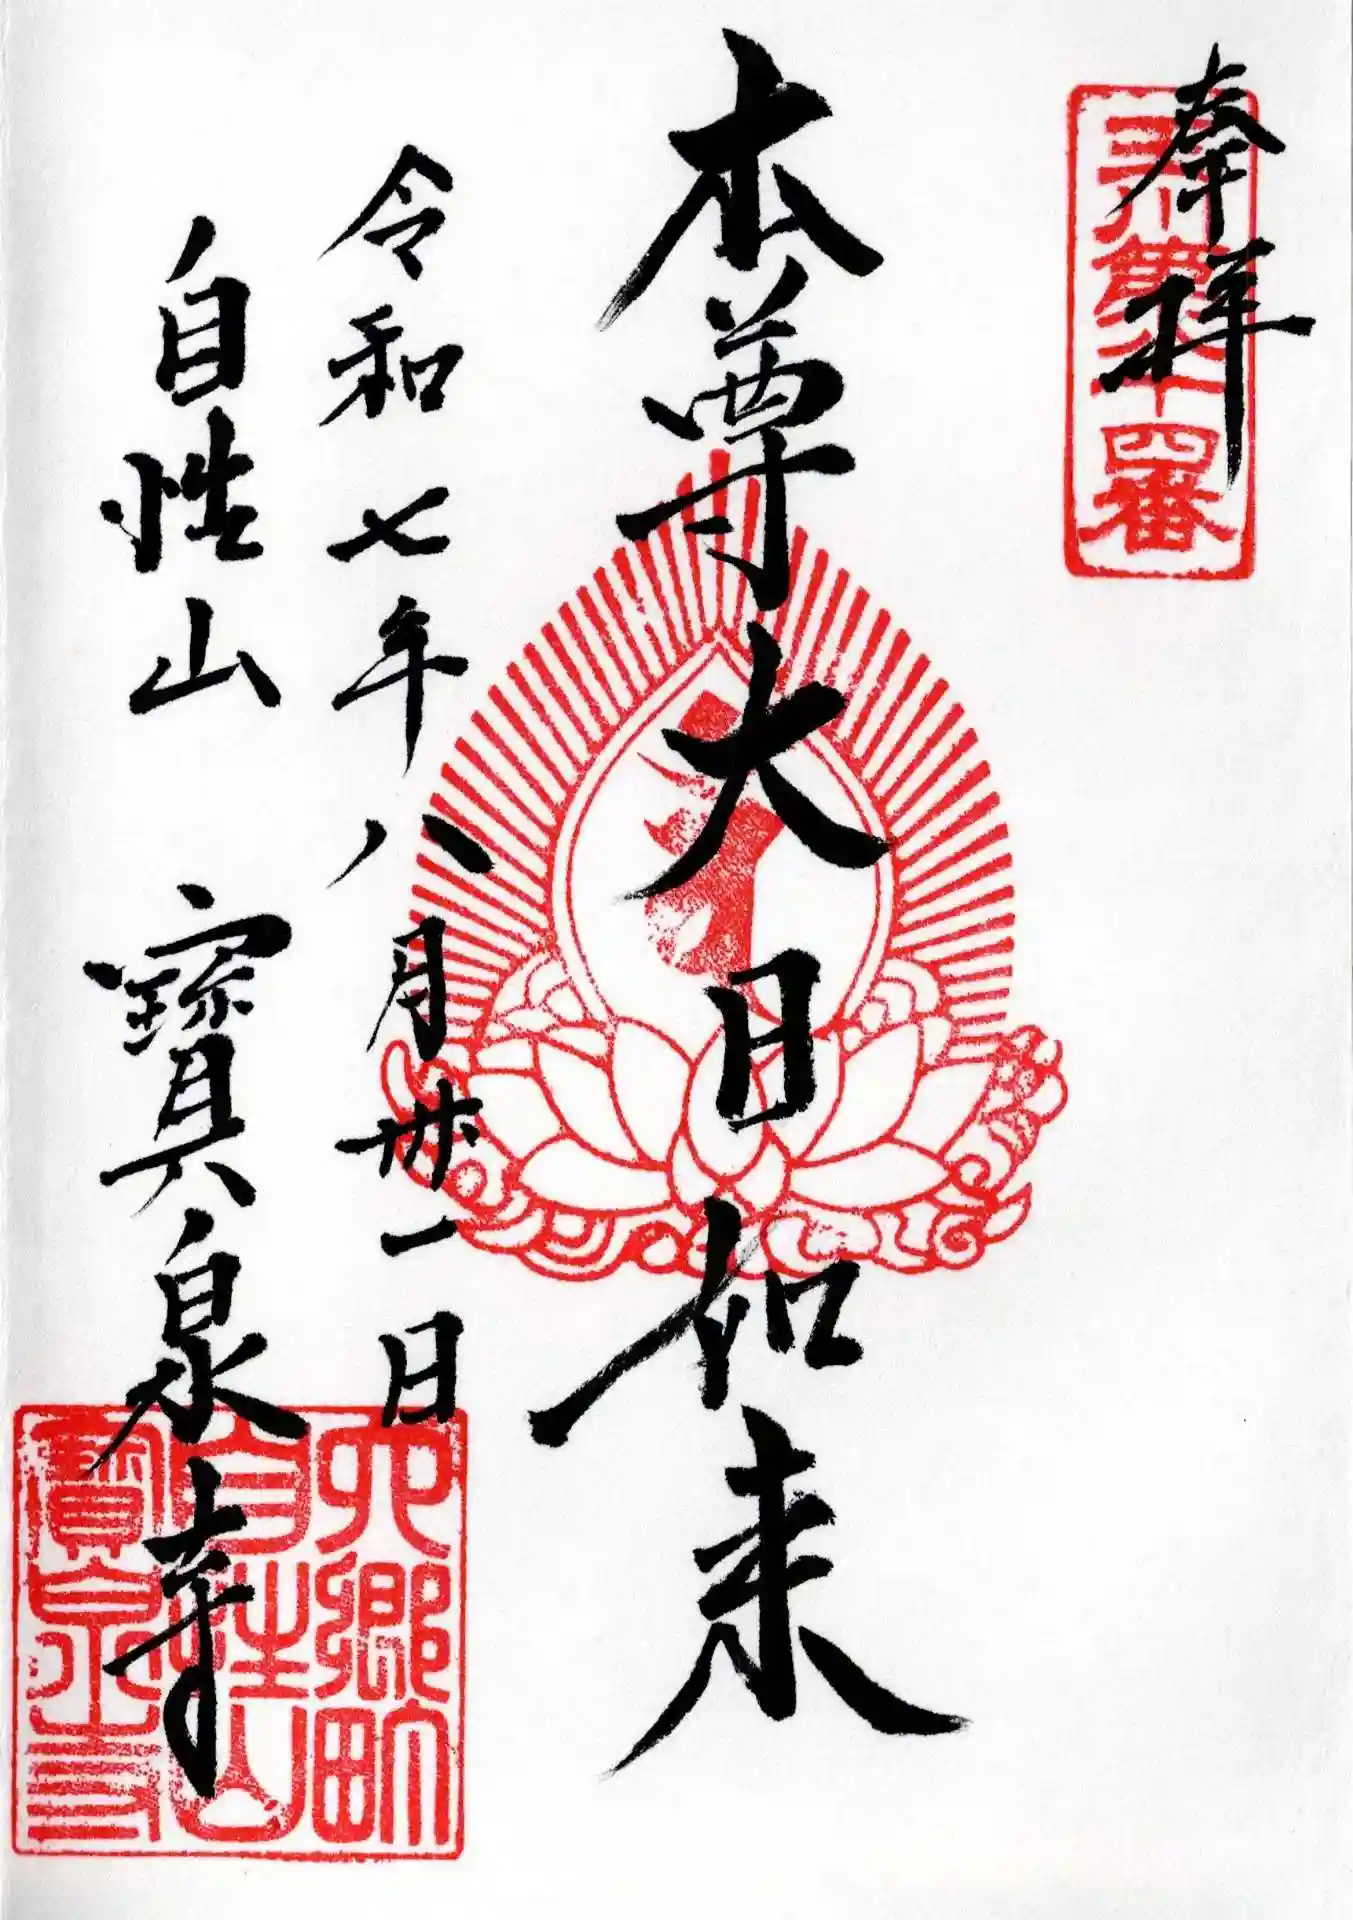 奉拝
本尊大日如来
令和七年八月卅一日
自性山 寶泉寺
六郷町
自性山
寶泉寺